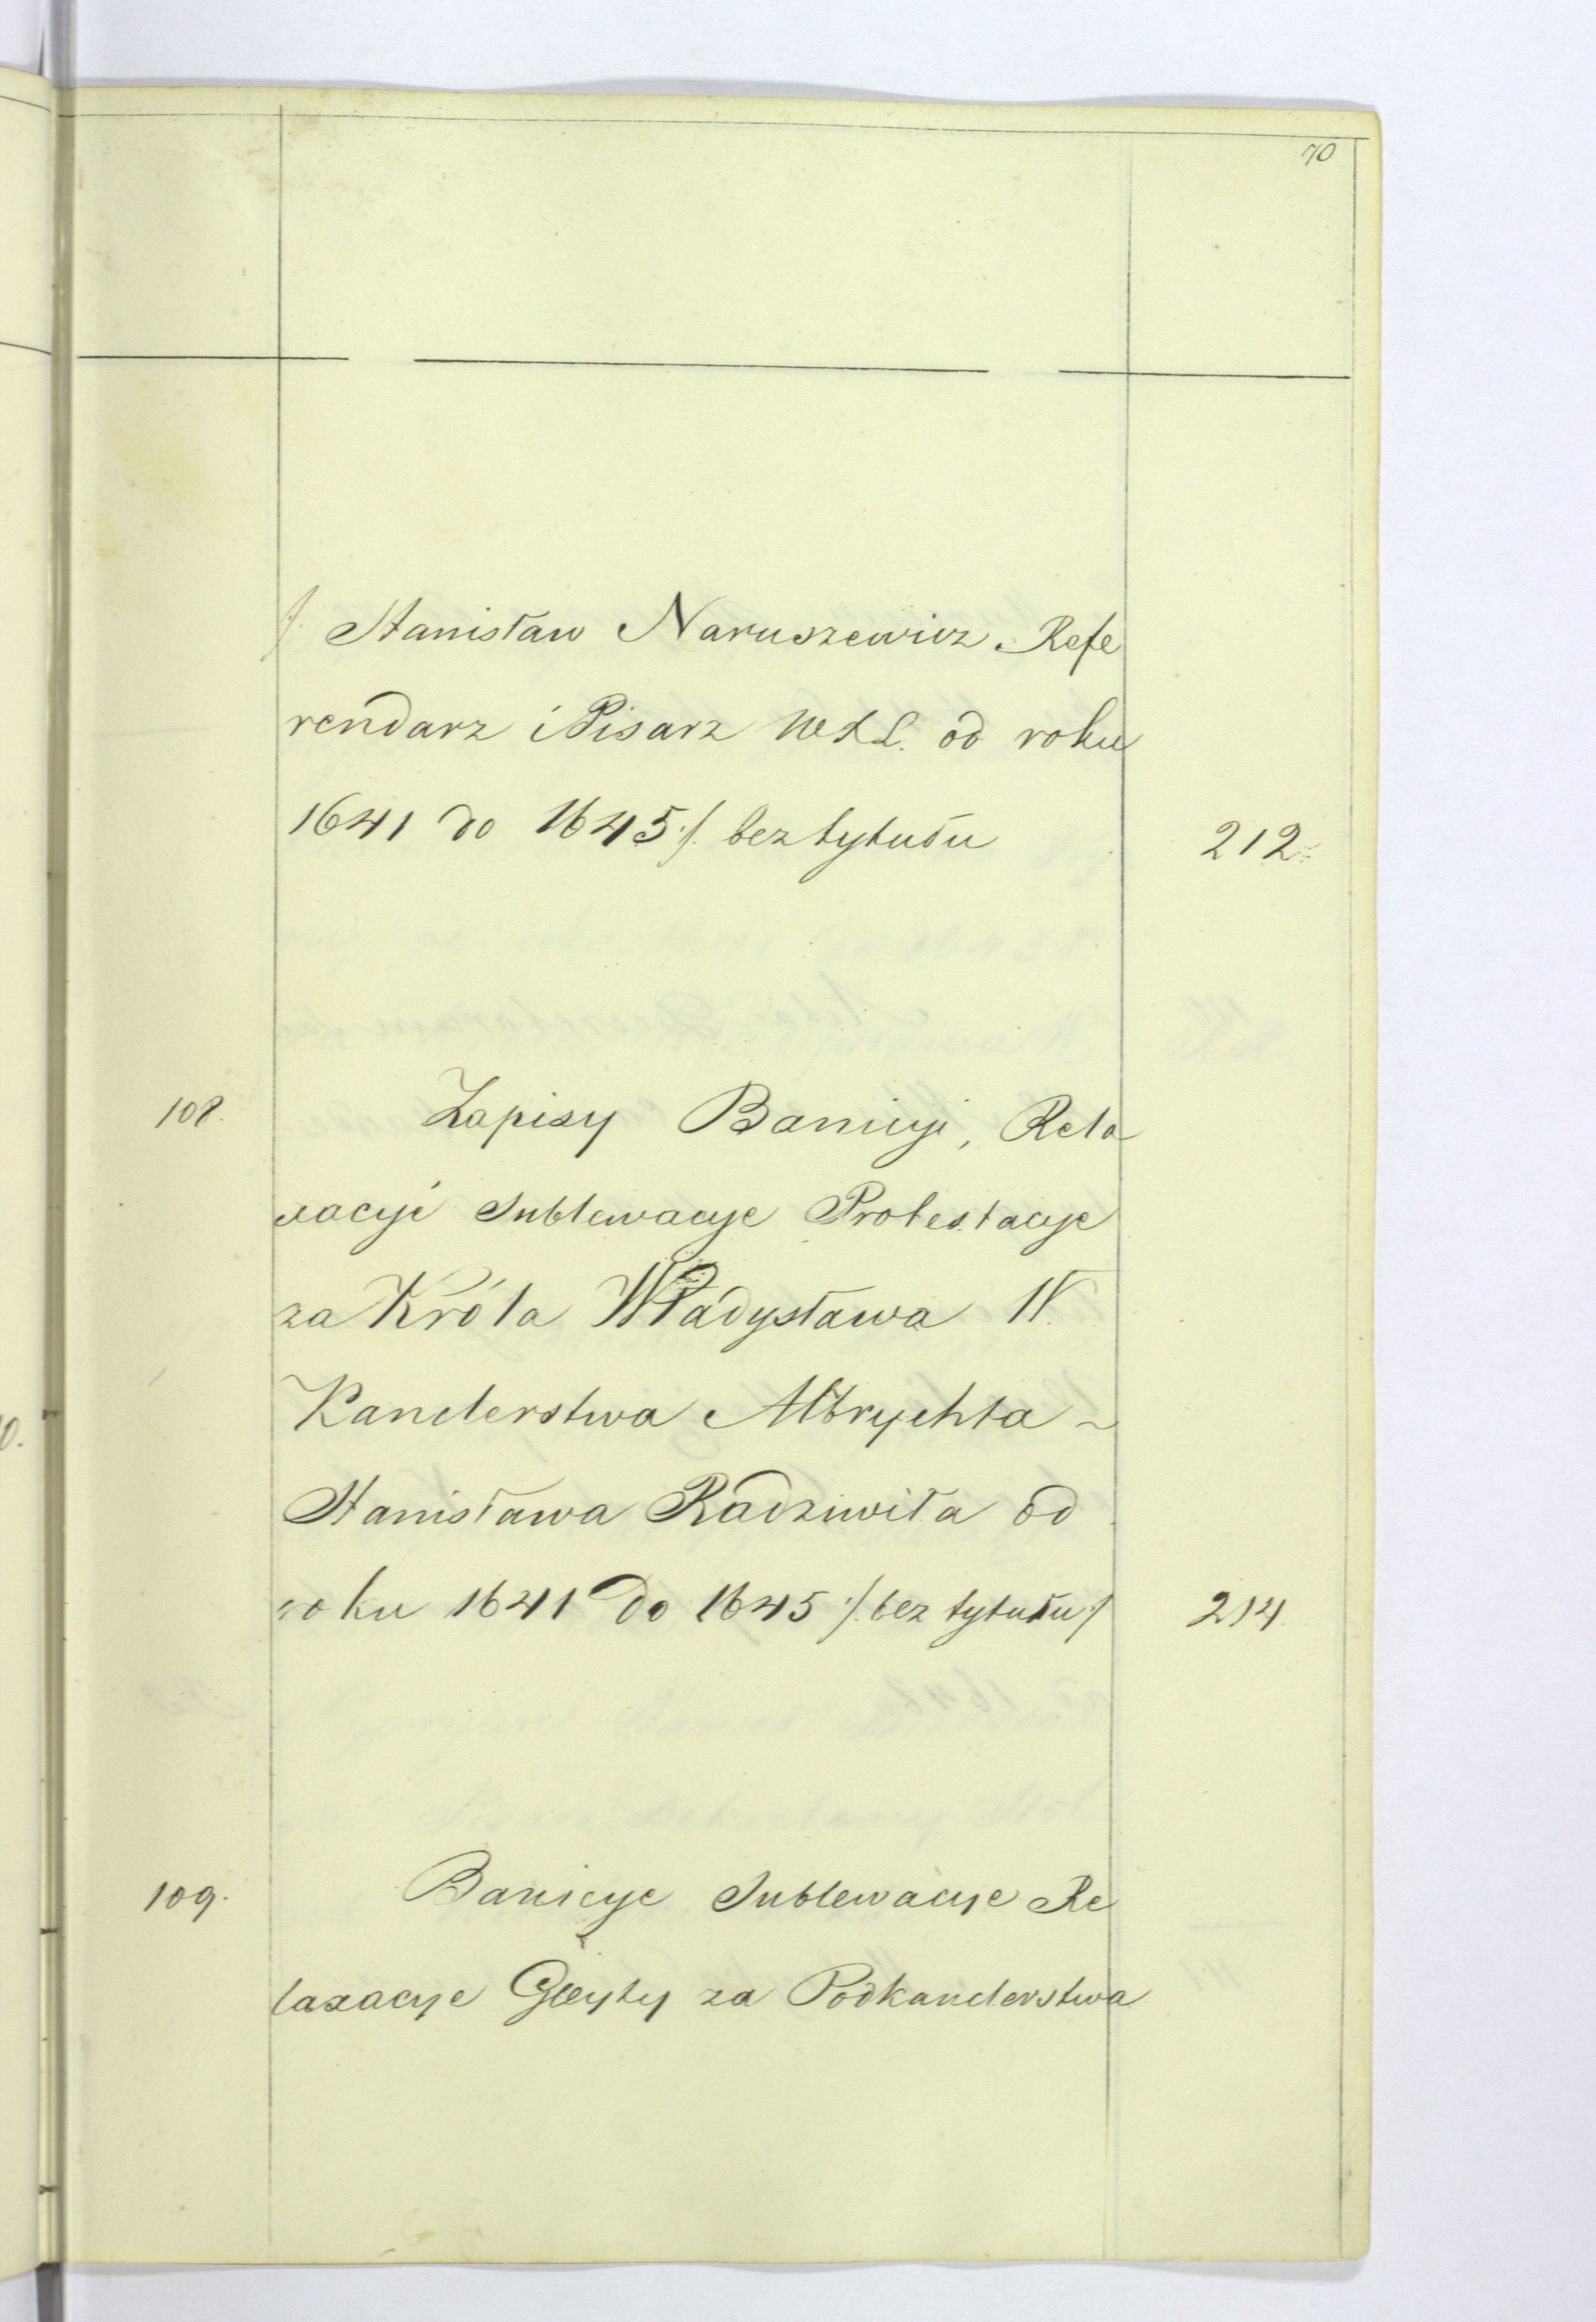 70
/. Stanisław Naruszewicz Refe
rendarz i Pisarz WXL. od roku
1641 do 1645 ./. bez tytułu 212
108. Zapisy Banicyi, Rela
xacyi Sublewacye Protestacye
za Króla Władysława IV.
Kanclerstwa Albrychta
Stanisława Radziwiła od
roku 1641 do 1645 /. bez tytułu ./ 214.
109. Banicye Sublewacye Re
laxacye Gleyty za Podkanclerstwa